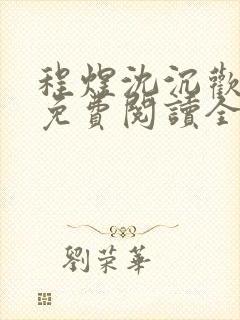 程煜沈沉歡
免費閱讀全
劉荣華